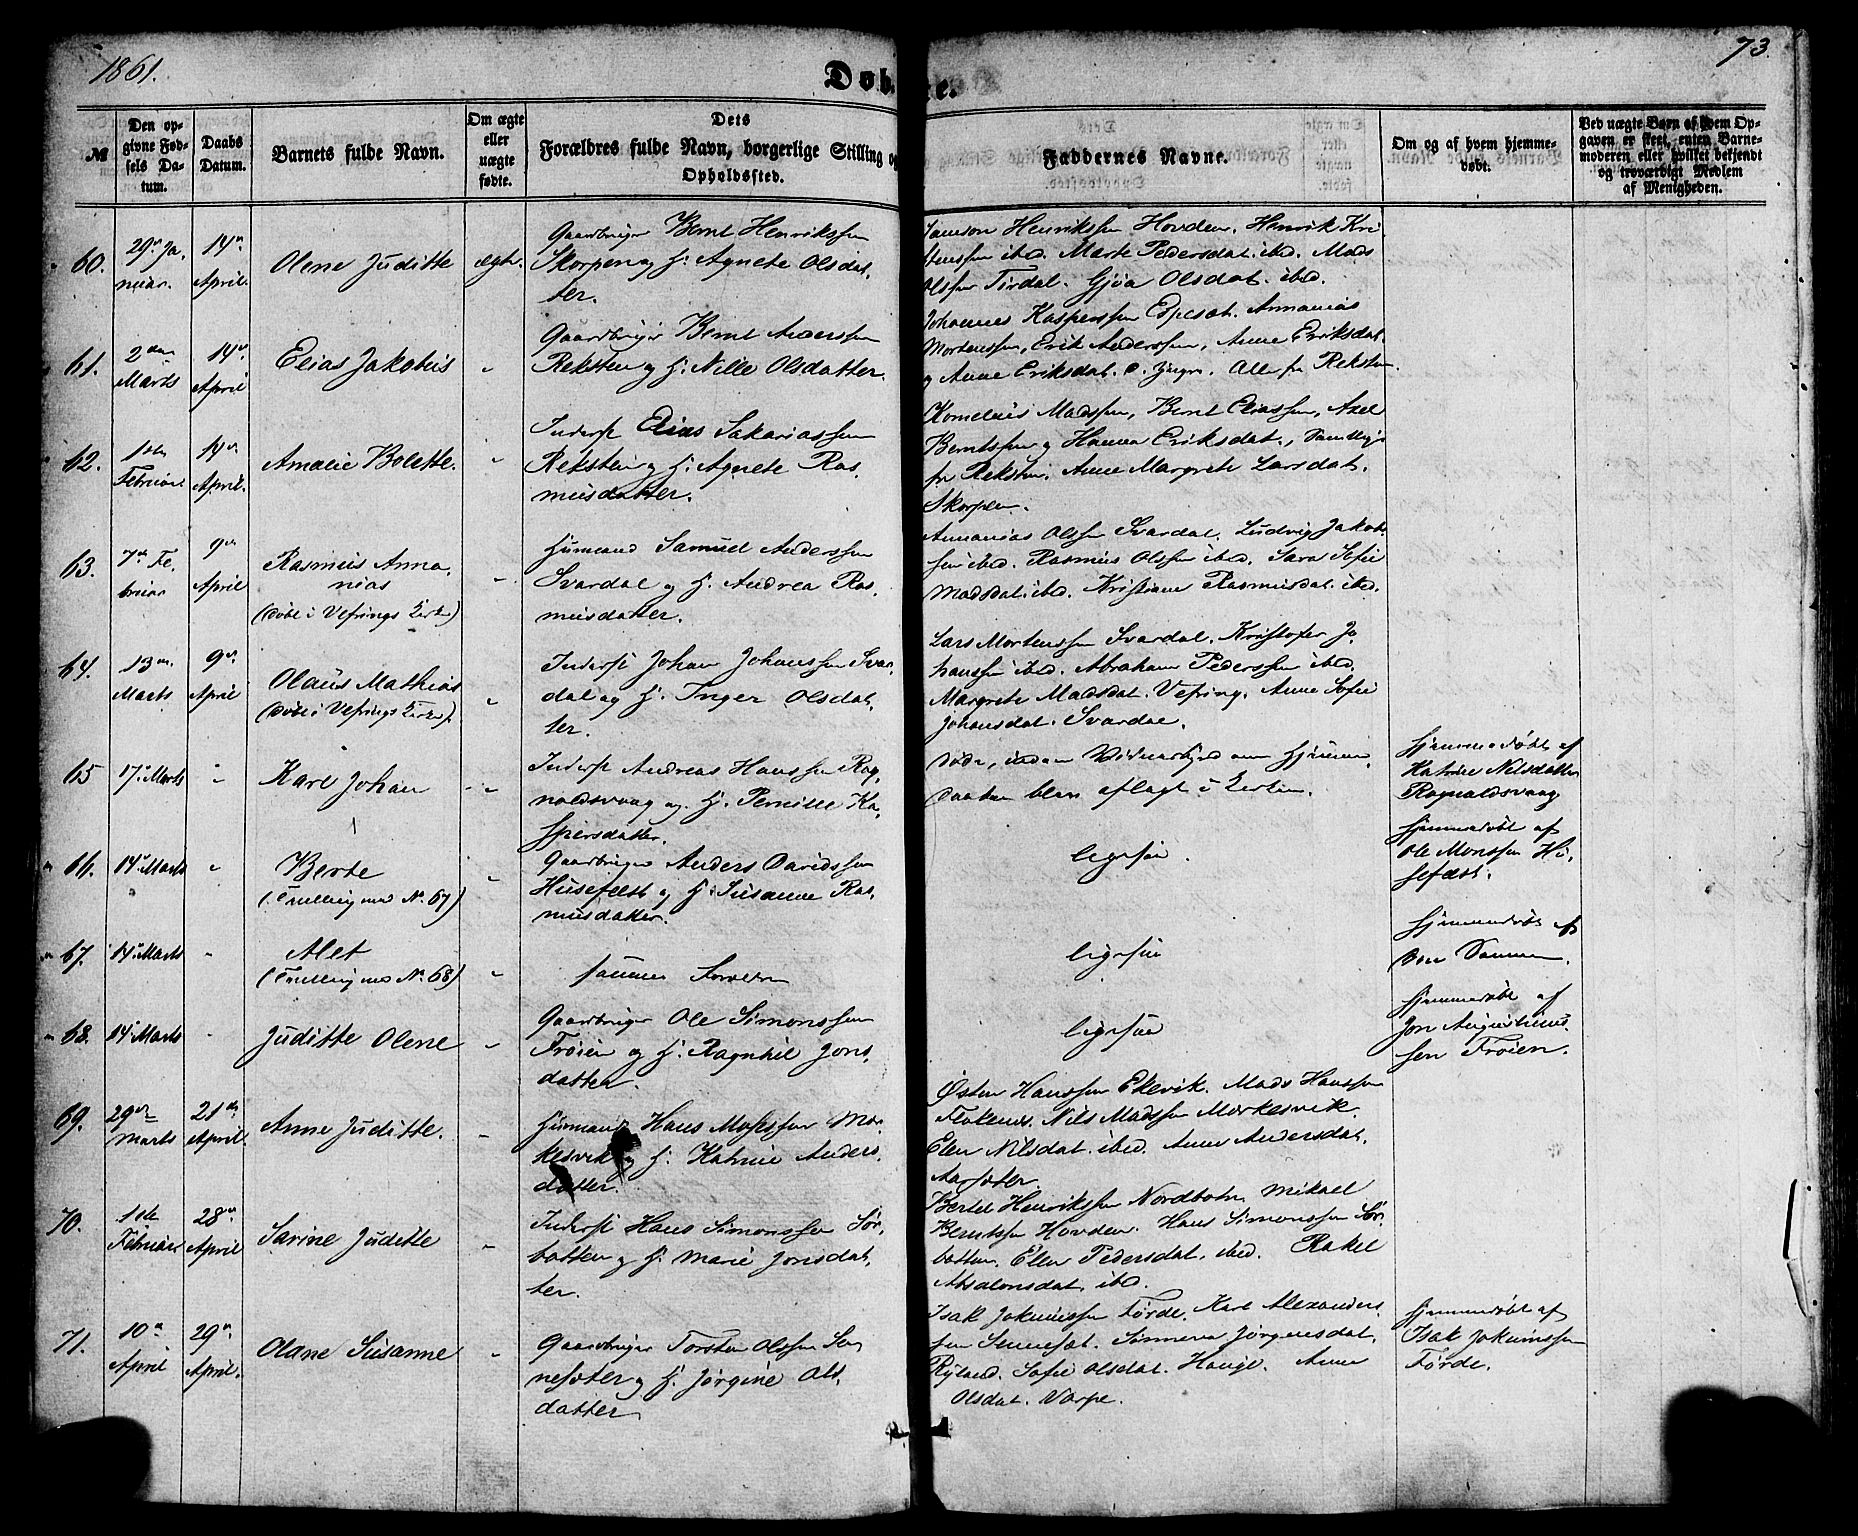 1861.
Døb
te.
73.
№
Den op-
givne Fød-
sels Da-
tum.
Daabs
Datum.
Barnets fulde Navn.
Om ægte
eller
uægte
fødte.
Dets
Forældres fulde Navn, borgerlige Stilling og
Opholdssted.
Faddernes Navne.
Om og af hvem hjemme-
døbt.
Ved uægte Barn af hvem Op-
gaven er skeet, enten Barne-
moderen eller hvilket bekjendt
og troværdigt Medlem
af Menigheden.
60.
29de Ja-
nuar.
14de
April.
Olene Juditte
ægte.
Gaardbruger Bernt Henrikssen
Skorpen og H. Agnete Olsdat-
ter.
Samson Henrikssen Hovden. Henrik Kri
stenssen ibd. Marte Pedersdat. ibd. Mads
Olssen Tirdal. Gjøa Olsdat. ibd.
61.
2den
Marts
14de
April
Elias Jakobus
"
Gaardbruger Bernt Anderssen
Reksten og H. Nille Olsdatter.
Johannes Kasperssen Espeset. Annanias
Mortenssen, Erik Anderssen, Anne Eriksdat.
og Anne Eriksdat. d. yngre. Alle fra Reksten.
62.
1ste
Februar.
14de
April.
Amalie Bolette.
"
Inderst Elias Sakariassen
Reksten og H. Agnete Ras-
musdatter.
Kornelius Madssen, Bernt Eliassen, Axel
Berntssen og Hanna Eriksdat., Samtlige
fra Reksten. Anne Margrete Larsdat.
Skorpen.
63.
7de Fe-
bruar
9de
April
Rasmus Anna-
nias
(Døbt i Vefrings Kirke)
"
Husmand Samuel Anderssen
Svardal og H. Andrea Ras-
musdatter.
Annanias Olssen Svardal. Ludvig Jakob-
sen ibd. Rasmus Olssen ibd. Sara Sofie
Madsdat. ibd. Kristiane Rasmusdat. ibd.
64.
13de
Marts
9de
April
Olaus Mathias
(Døbt i Vefrings Kirke).
"
Inderst Johan Johanssen Svar-
dal og H. Inger Olsdat-
ter.
Lars Mortenssen Svardal. Kristofer Jo
hanssen ibd. Abraham Pederssen ibd.
Margrete Madsdat. Vefring. Anne Sofie
Johansdat. Svardal.
65
17de Marts
"
Karl Johan
"
Inderst Andreas Hanssen Rag-
noldsvaag og H. Pernille Ka-
spersdatter.
Døde, inden Vidnesbyrd om Hjemme-
daaben blev aflagt i Kirken.
Hjemmedøbt af
Katrine Nilsdatter
Ragnoldsvaag
66.
14de Marts
"
Berte
(Tvilling med No. 67)
"
Gaardbruger Anders Davidssen
Husefest og H. Susanne Ras-
musdatter.
ligesaa.
Hjemmedøbt af
Ole Monssen Hu-
sefest.
67.
14de Marts
"
Alet
(Tvilling med No. 68)
"
samme Forældre
ligesaa
Hjemmedøbt af
den Samme.
68.
14de Marts
"
Juditte Olene
"
Gaardbruger Ole Simonssen
Frøien og H. Ragnhil Jons-
datter.
ligesaa
Hjemmedøbt af
Jon Augustinus-
sen Frøien.
69.
29de
Marts
21de
April.
Anne Juditte.
"
Husmand Hans Mosessen Mor-
kesvik og H. Katrine Anders-
datter.
Østen Hanssen Ekevik. Mads Hanssen
Flokenes. Nils Madssen Morkesvik.
Elen Nilsdat. ibd. Anne Andersdat.
Aarsæter
70.
1ste
Februar.
28de
April
Sarine Juditte
"
Inderst Hans Simonssen Sør-
botten og H. Marie Jonsdat-
ter.
Bertel Henrikssen Nordbotn. Mikael
Berntssen Hovden. Hans Simonssen Sør-
botten. Ellen Pedersdat. ibd. Rakel
Absalonsdat. ibd.
71.
10de
April
29de
April.
Olane Susanne
"
Gaardbruger Torsten Olssen Sen-
nesæter og H. Jørgine Ols-
datter
Isak Jokumssen Førde. Karl Alexanders
sen Sennesæt. Jørgensdat.
Ryland. Sofie Olsdat. Hauge. Anne
Olsdat. Varpe.
Hjemmedøbt af
Isak Jokumssen
Førde.